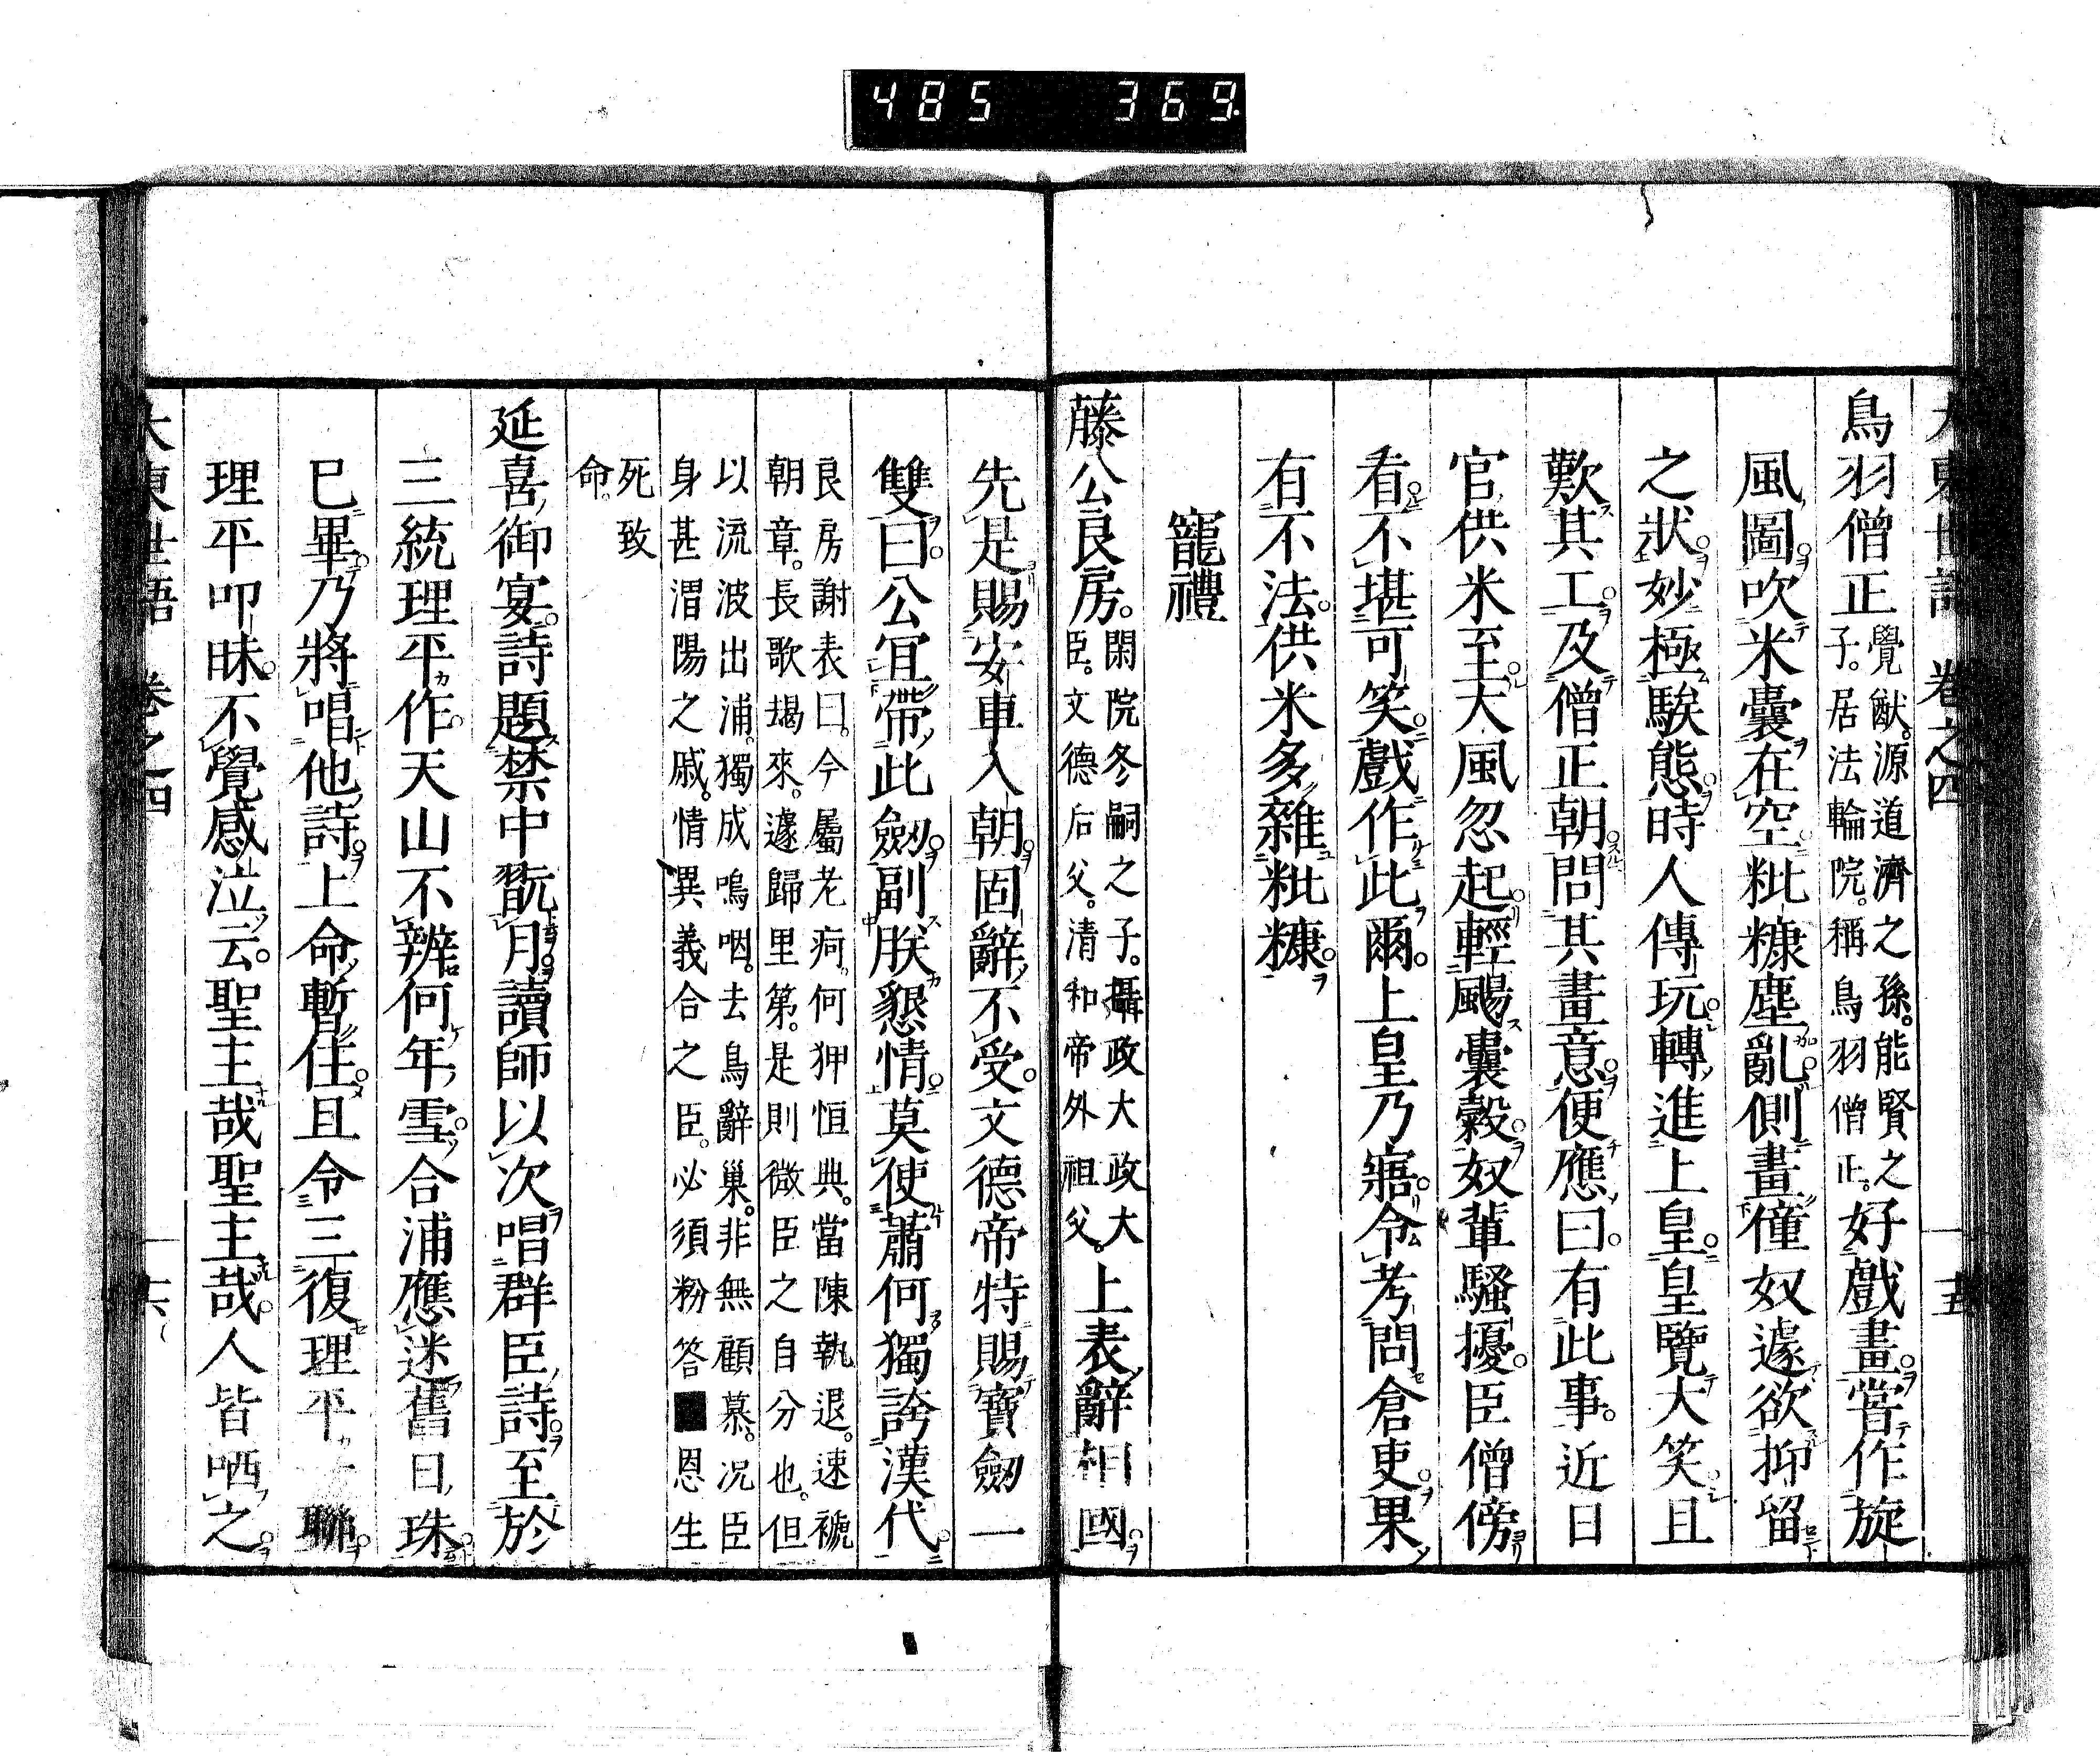 485 369
大東世語 卷之四 十五
鳥羽僧正 覺猷。源道濟之孫。能賢之
子。居法輪院。稱鳥羽僧正。 好戲畫。嘗作旋
風圖。吹米囊在空。粃糠塵亂。側畫僮奴遽欲抑留
之狀。妙極騃態。時人傳玩。轉進上皇。皇覽大笑。且
歎其工。及僧正朝。問其畫意。便應曰。有此事。近日
官供米至。大風忽起。輕颺囊穀。奴輩騷擾。臣僧傍
看。不堪可笑。戲作此爾。上皇乃寤。令考問倉吏。果
有不法。供米多雜粃糠。
寵禮
藤公良房。 閑院冬嗣之子。攝政大政大
臣。文德后父。清和帝外祖父。 上表辭相國。
先是賜安車入朝。固辭不受。文德帝特賜寶劔一
雙曰。公宜帶此劔。副朕懇情。莫使蕭何獨誇漢代。
良房謝表曰。今屬老痾。何狎恒典。當陳執退。速褫
朝章。長歌朅來。遽歸里第。是則微臣之自分也。但
以流波出浦。獨成嗚咽。去鳥辭巢。非無顧慕。况臣
身甚渭陽之戚。情異義合之臣。必須粉答■恩生
死致
命。
延喜御宴。詩題禁中翫月。讀師以次唱群臣詩。至於
三統理平作。天山不辨何年雪。合浦應迷舊日珠。
已畢。乃將唱他詩。上命暫住。且令三復理平一聯。
理平叩昧。不覺感泣云。聖主哉聖主哉。人皆哂之。
大東世語 卷之四 十六